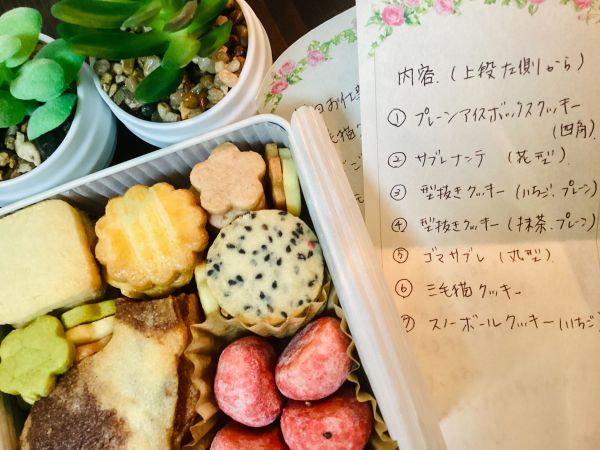 内容.(上段左側から)
① プレーンアイスボックスクッキー
(四角)
② サブレナンテ (花型)
③ 型抜きクッキー(いちご、プレーン)
④ 型抜きクッキー(抹茶、プレーン)
⑤ ゴマサブレ (丸型)
⑥ 三毛猫クッキー
⑦ スノーボールクッキー(いちご)
お仕事
毛猫ク